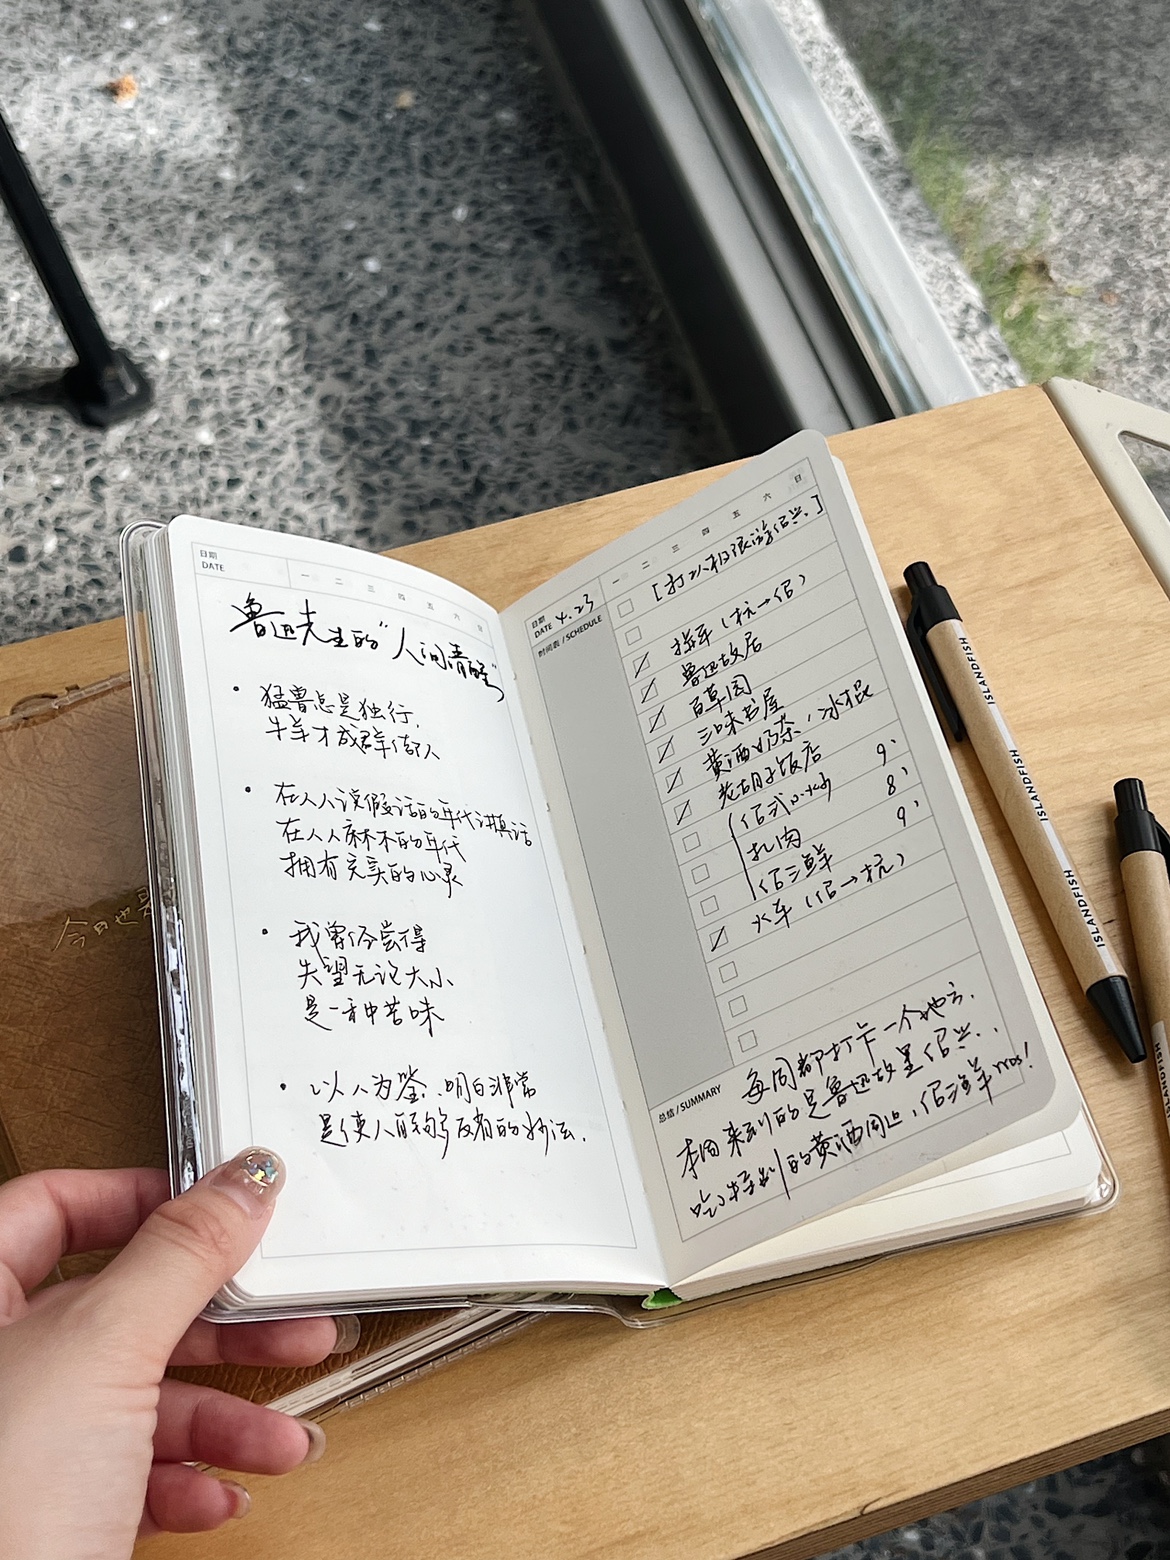 日期
DATE
一 二 三 四 五 六 日
鲁迅先生的"人间清醒"
• 猛兽总是独行,
牛羊才成群结队
• 在人人说假话的年代讲真话
在人人麻木的年代
拥有完美的心灵
• 我曾经尝得
失望无论大小
是一种苦味
• 以人为鉴、明白非常
是使人能够反省的妙法.
日期
DATE 4.23
一 二 三 四 五 六 日
时间表 / SCHEDULE
绍兴.]
(杭→绍)
鲁迅故居
百草园
三味书屋
黄酒奶茶,冰棍
老胡子饭店
绍式小炒 9'
扎肉 8'
绍三鲜 9'
火车 (绍→杭)
总结 / SUMMARY
每周都打卡一个地方.
本周来到的是鲁迅故里绍兴..
吃了特别的黄酒周边,绍三鲜 mos!
今日也是
ISLANDFISH
ISLANDFISH
ISLANDFISH
ISLANDFISH
ISLANDFISH